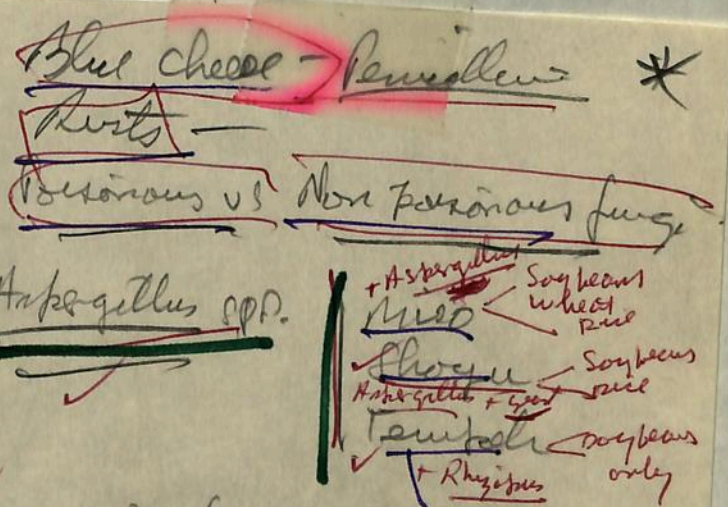 Blue cheese – Penicillium
Rusts –
Poisonous vs Non poisonous fungi
Aspergillus spp.
+ Aspergillus
Miso
Soybeans
wheat
rice
Shoyu
Soybeans
rice
Aspergillus + yeast
Tempeh
soybeans
only
+ Rhizopus